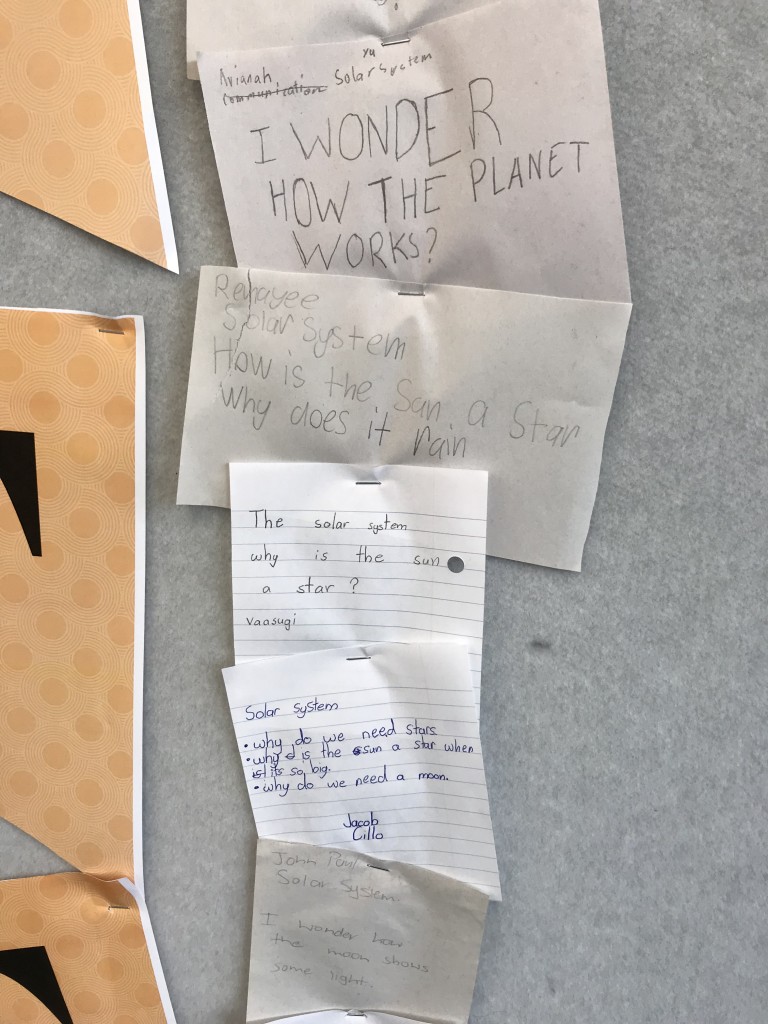 Avianah yu
Solar System
I WONDER
HOW THE PLANET
WORKS?
Rehayee
Solar System
How is the Sun a Star
Why does it rain
The solar system
why is the sun
a star ?
vaasugi
Solar System
• why do we need stars
• why is the sun a star when
its so big.
• why do we need a moon.
Jacob
Cillo
John Paul
Solar System
I wonder how
the moon shows
some light.